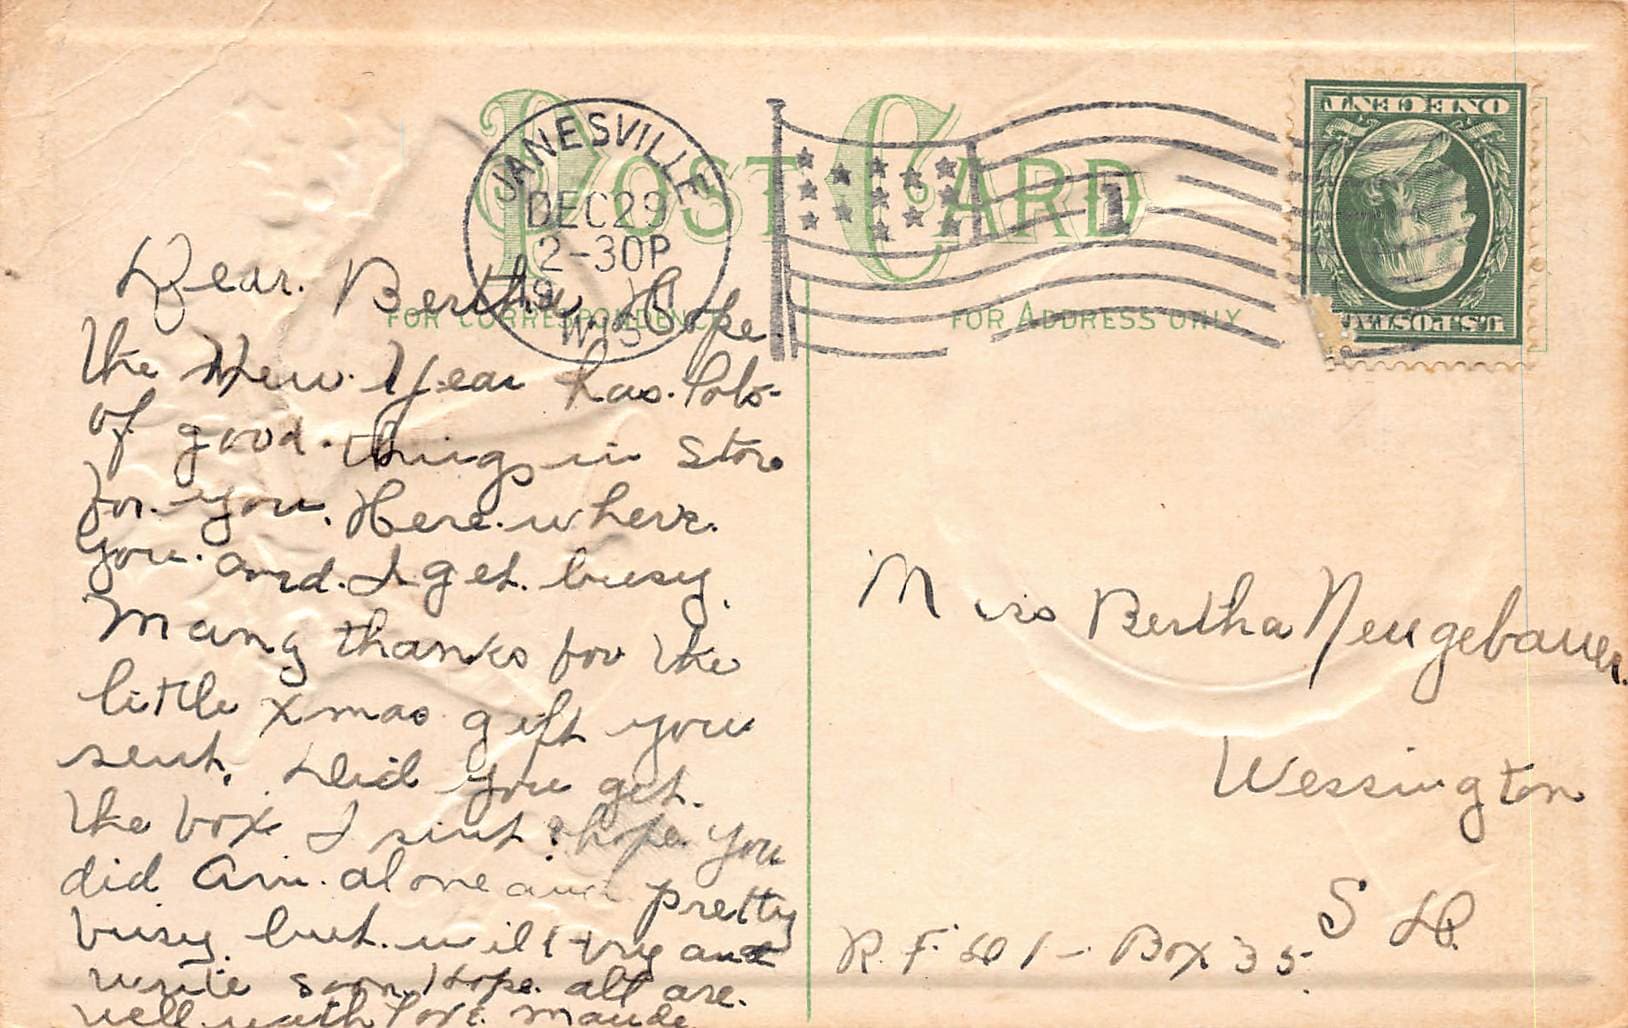 POST CARD
JANESVILLE
DEC 29
2-30P
19
WIS.
1
ONE CENT
U.S. POSTAGE
FOR CORRESPONDENCE
FOR ADDRESS ONLY
Dear. Bertha. Hope.
the New. Year has. lots-
of good. things in store
for. you. Here. where.
you. and. I get. busy.
Many thanks for the
little xmas gift you
sent. Did you get.
the box I sent? hope. you
did Am. alone and pretty
busy. but. will try and
write soon. Hope. all are.
well. with love. maude.
Miss Bertha Neugebauer.
Wessington
S D.
R. F. D 1 - Box 35.